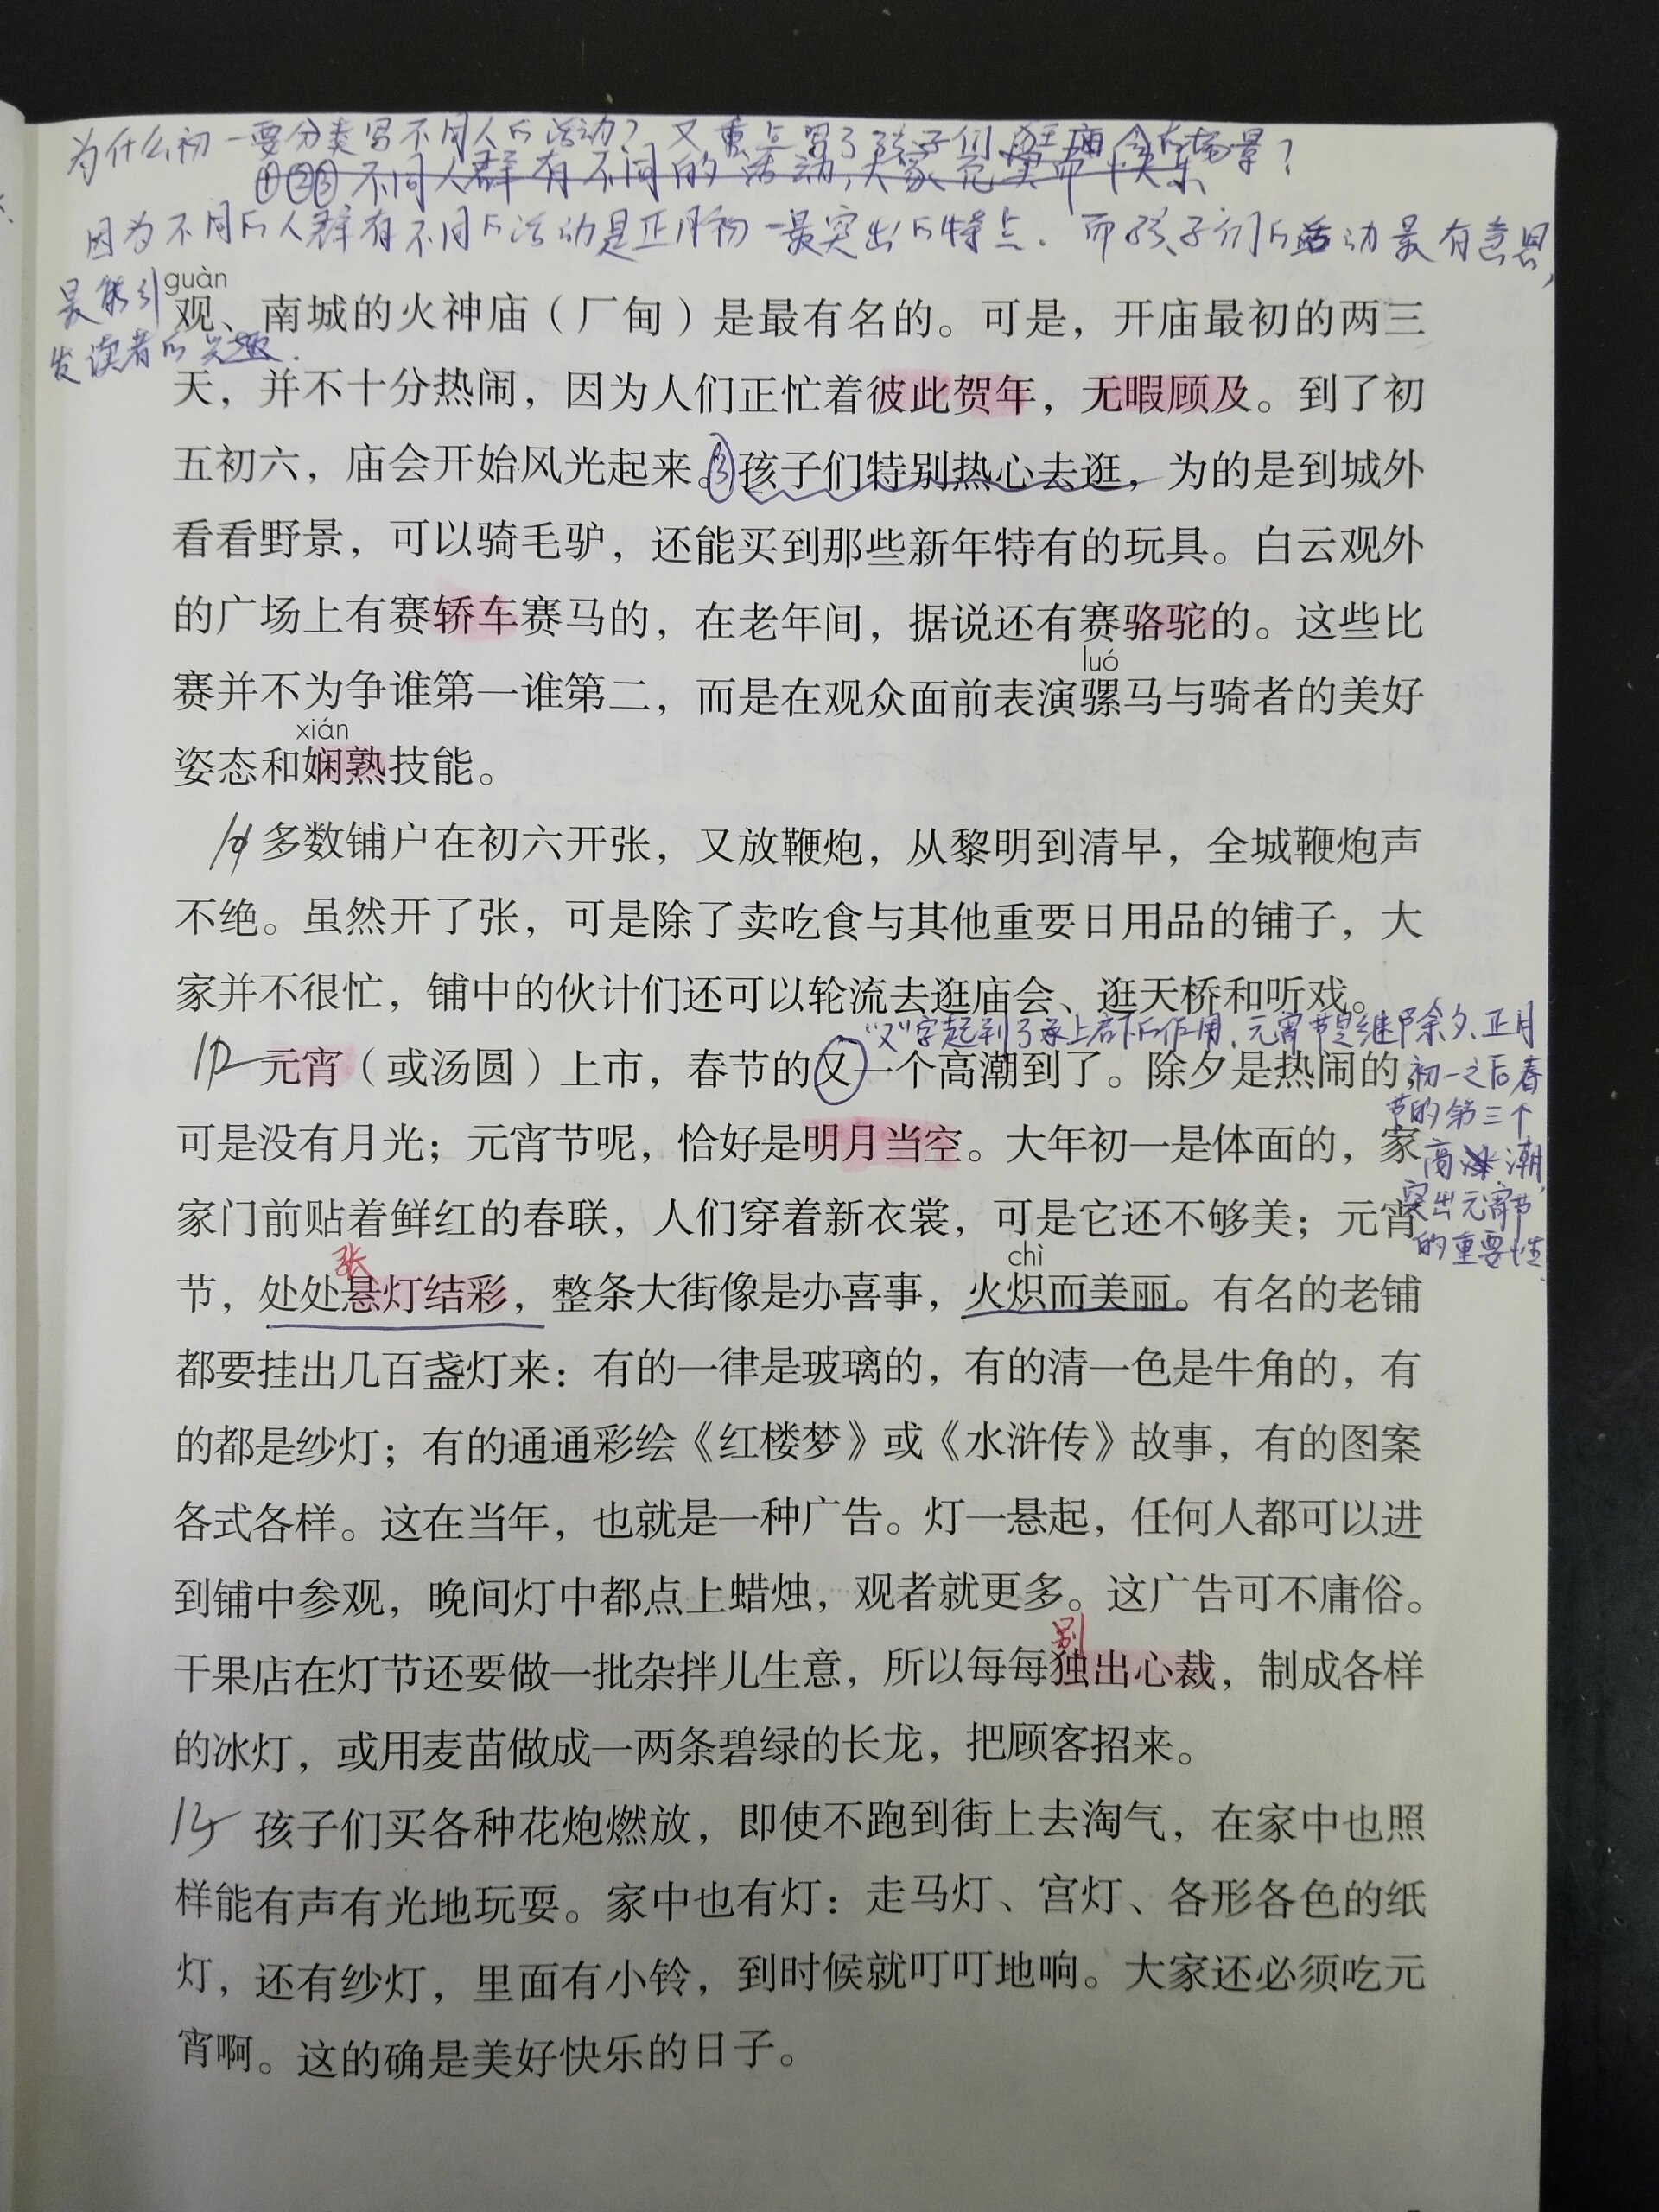 为什么初一要分类写不同人的活动？又重点写了孩子们逛庙会的场景？
①②③不同人群有不同的活动，大家充实而快乐
因为不同的人群有不同的活动是正月初一最突出的特点．而孩子们的活动最有意思，
最能引
发读者的兴趣．
guàn
观、南城的火神庙（厂甸）是最有名的。可是，开庙最初的两三
天，并不十分热闹，因为人们正忙着彼此贺年，无暇顾及。到了初
五初六，庙会开始风光起来。③孩子们特别热心去逛，为的是到城外
看看野景，可以骑毛驴，还能买到那些新年特有的玩具。白云观外
的广场上有赛轿车赛马的，在老年间，据说还有赛骆驼的。这些比
luó
赛并不为争谁第一谁第二，而是在观众面前表演骡马与骑者的美好
xián
姿态和娴熟技能。
多数铺户在初六开张，又放鞭炮，从黎明到清早，全城鞭炮声
不绝。虽然开了张，可是除了卖吃食与其他重要日用品的铺子，大
家并不很忙，铺中的伙计们还可以轮流去逛庙会、逛天桥和听戏。
“又”字起到了承上启下的作用．元宵节是继除夕、正月
初一之后春
节的第三个
高潮，
突出元宵节
的重要性．
12 元宵（或汤圆）上市，春节的又一个高潮到了。除夕是热闹的，
可是没有月光；元宵节呢，恰好是明月当空。大年初一是体面的，家
家门前贴着鲜红的春联，人们穿着新衣裳，可是它还不够美；元宵
张
chì
节，处处悬灯结彩，整条大街像是办喜事，火炽而美丽。有名的老铺
都要挂出几百盏灯来：有的一律是玻璃的，有的清一色是牛角的，有
的都是纱灯；有的通通彩绘《红楼梦》或《水浒传》故事，有的图案
各式各样。这在当年，也就是一种广告。灯一悬起，任何人都可以进
到铺中参观，晚间灯中都点上蜡烛，观者就更多。这广告可不庸俗。
别
干果店在灯节还要做一批杂拌儿生意，所以每每独出心裁，制成各样
的冰灯，或用麦苗做成一两条碧绿的长龙，把顾客招来。
13 孩子们买各种花炮燃放，即使不跑到街上去淘气，在家中也照
样能有声有光地玩耍。家中也有灯：走马灯、宫灯、各形各色的纸
灯，还有纱灯，里面有小铃，到时候就叮叮地响。大家还必须吃元
宵啊。这的确是美好快乐的日子。